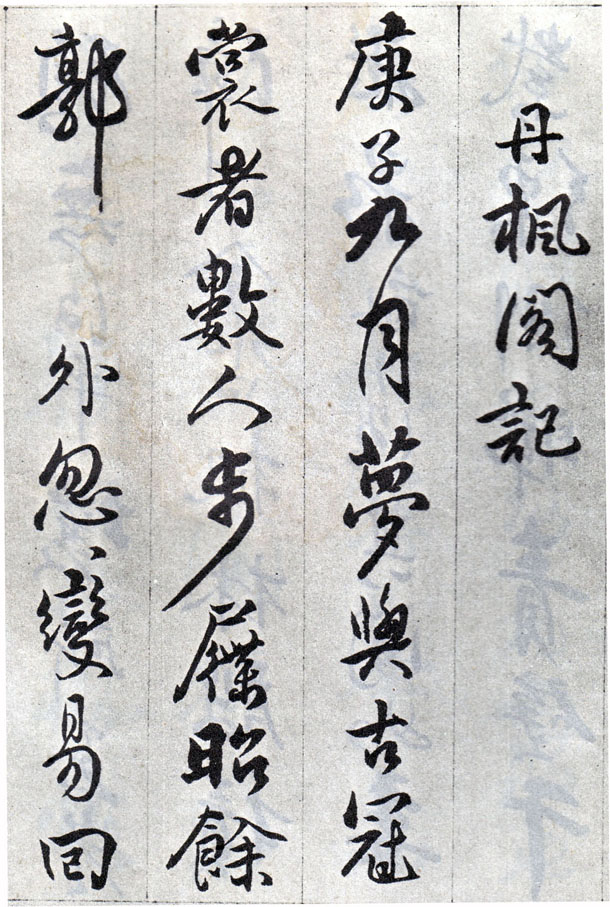 丹楓閣記
庚子九月夢與古冠
裳者數人步屧昭餘
郭外忽變易回